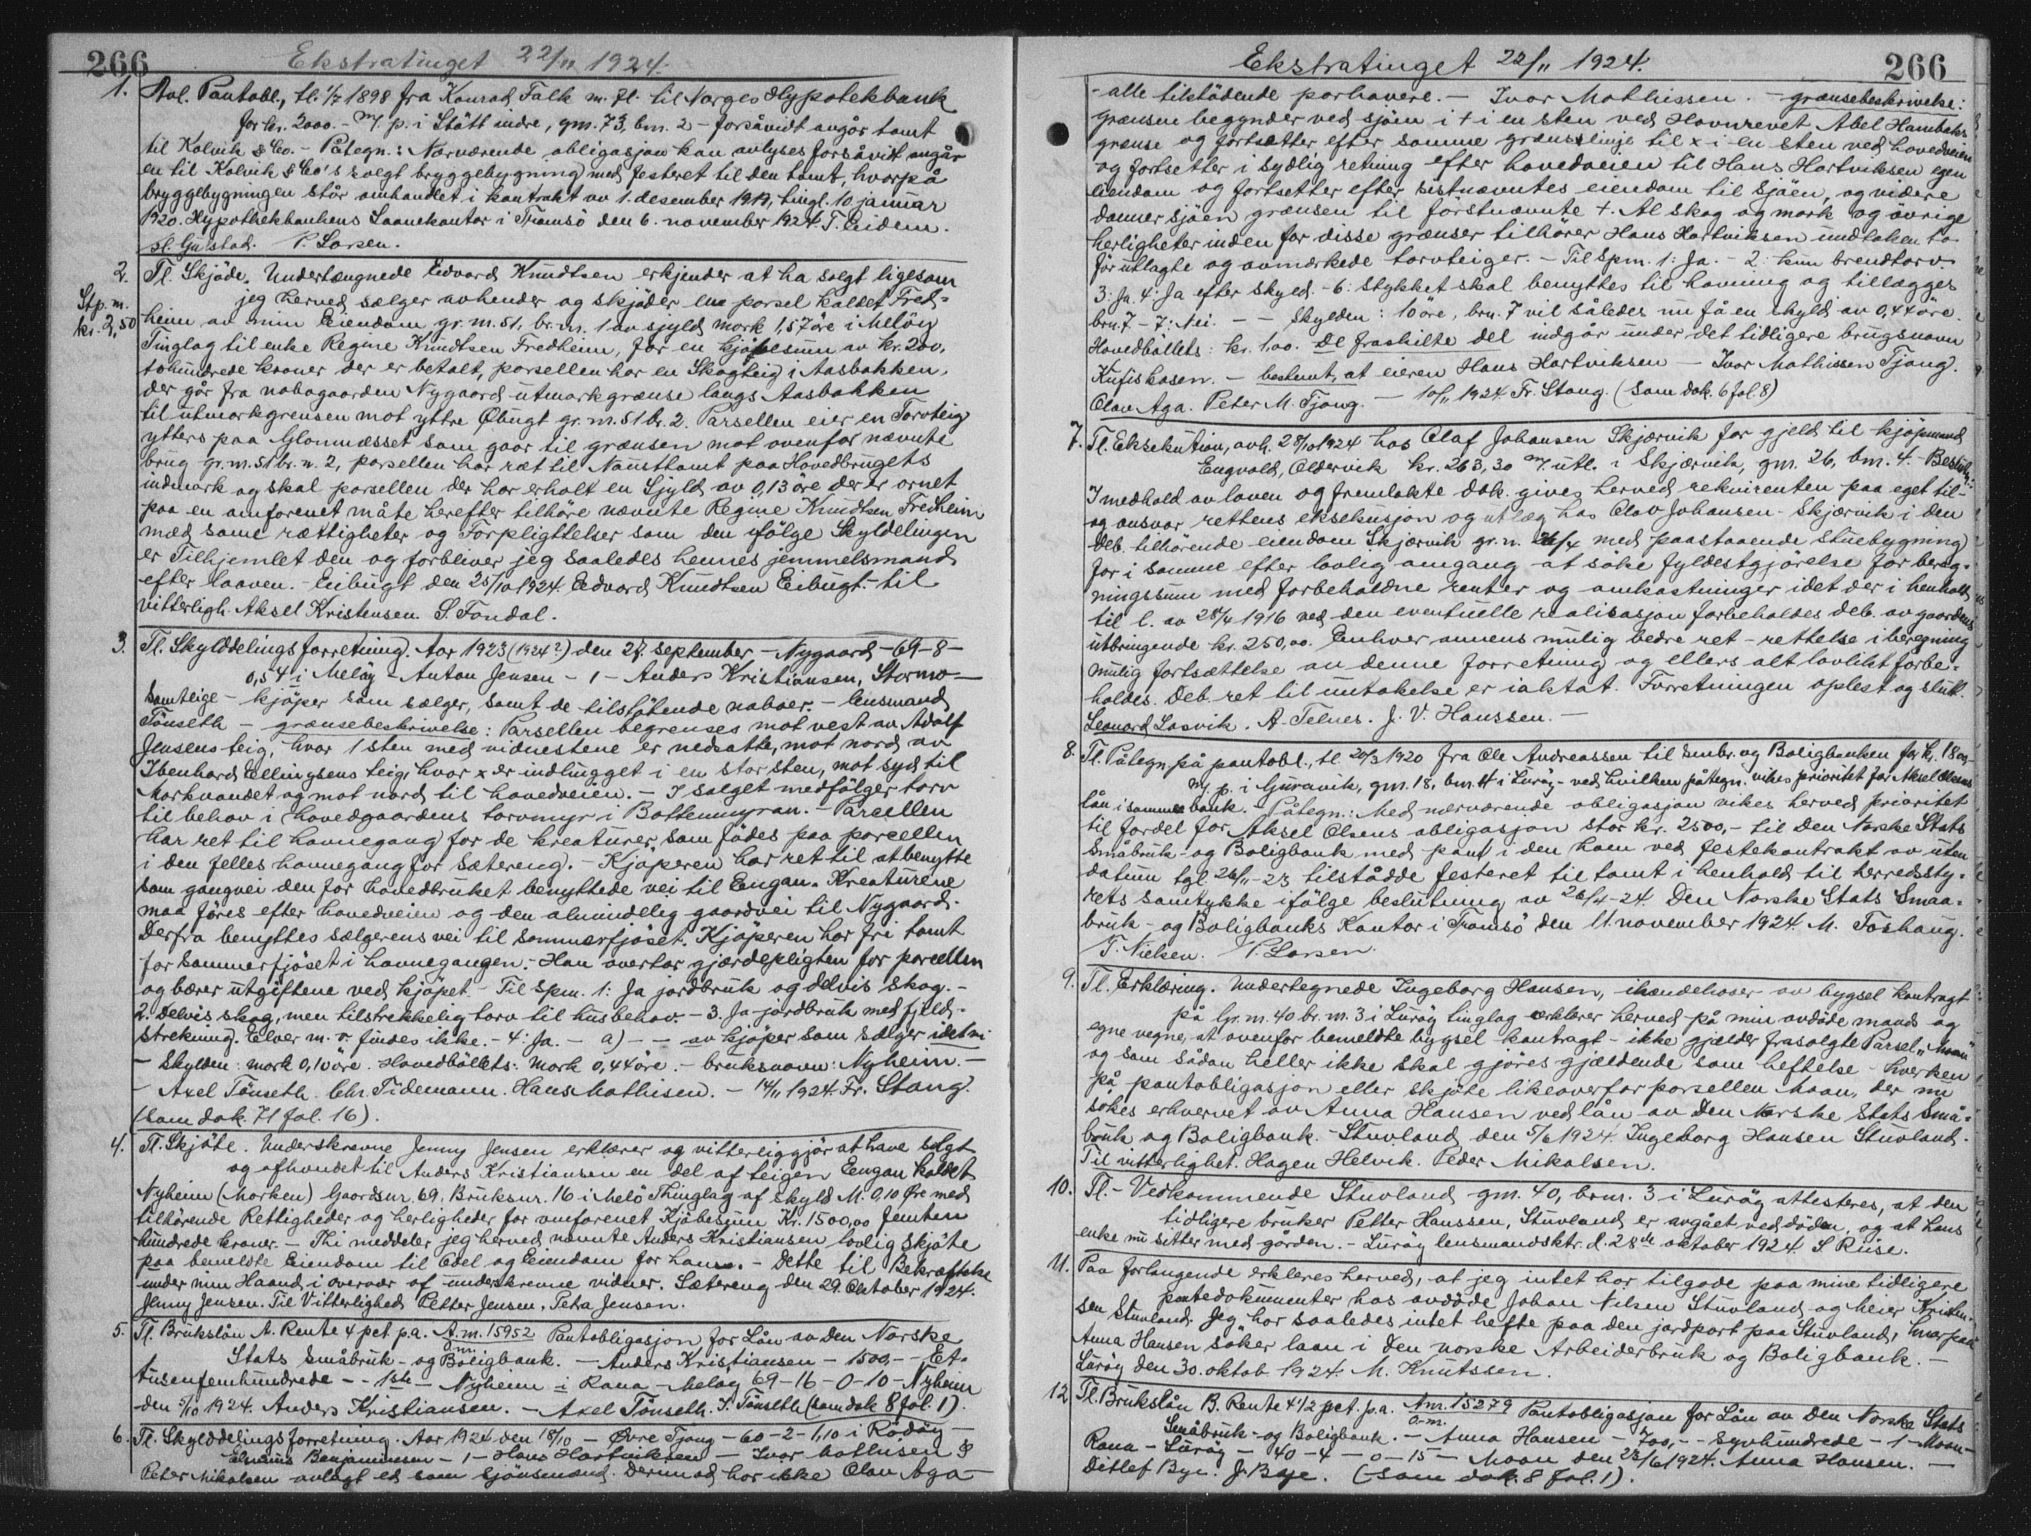 266 Ekstratinget 22/11 1924.
1. Avl. Pantobl., tl. 1/7 1898 fra Konrad Falk m. fl. til Norges Hypotekbank
for kr. 3000.- m/ p. i Stött indre, gm. 73, bm. 2 - forsåvidt angår tomt
til Kolvik & Co. - Påtegn.: Nærværende obligasjon kan avlyses forsåvidt angår
en til Kolvik & Co's solgt bryggebygning med festeret til den tomt, hvorpå
bryggebygningen står omhandlet i kontrakt av 1. desember 1919, tingl. 10 januar
1920. Hypothekbankens Laanekontor i Tromsö den 6. november 1924. T. Eidem.
sl. Gustad. P. Larsen.
2. Tl. Skjöde. Undertegnede Edvard Knudtsen erkjender at ha solgt ligesom
Stp. m. kr. 2,50
jeg herved sælger avhender og skjöder en porsel kaldet Fred-
heim av min Eiendom gr. m. 51, br. m. 1 av skjyld mork 1,57 öre i Melöy
Tinglag til enke Regine Knudtsen Fredheim, for en kjöpesum av kr. 200,
tohundrede kroner der er betalt, porsellen har en Skogteig i Aasbakken,
der går fra nabogaarden Nygaard utmarkgrænse langs Aasbakken
til utmarkgrensen mot yttre Øbugt gr. m. 51 br. 2. Parsellen eier en Torvteig
ytters paa Glomnæsset som gaar til grænsen mot ovenfor nævnte
brug gr. m. 51 br. n. 2, porsellen har ræt til Nausttomt paa Hovedbrugets
indmark og skal porsellen der har erholt en Sjyld av 0,13 öre der er ornet
paa en omforenet måte herefter tilhöre nævnte Regine Knudtsen Fredheim
med same rættigheter og Forpligttelser som den ifölge Skyldelingen
er Tilhjemlet den og forbliver jeg saaledes hennes jemmelsmand
efter Loaven. - Eibugt den 25/10 1924. Edvard Knudtsen Eibugt. - til
vitterligh. Aksel Kristensen. S. Fondal.
3. Tl. Skylddelingsforretning. Aar 1923 (1924?) den 27. september - Nygaard - 69-8-
0,54 i Melöy - Anton Jensen - 1 - Anders Kristiansen, Stormo -
Samtlige - kjöper som sælger, samt de tilstötende naboer. - lensmand
Tönseth - grænsebeskrivelse: Parsellen begrenses mot vest av Adolf
Jensens teig, hvor 1 sten med vidnestene er nedsatte, mot nord av
Ibenhard Ellingsens teig, hvor x er indhugget i en stor sten, mot syd til
Markvandet og mot nord til hovedveien. - I salget medfölger torv
til behov i hovedgaardens torvmyr i Bottenmyran. - Parcellen
har ret til havnegang for de kreaturer, som födes paa porcellen
i den felles havnegang for Sætereng. - Kjöperen har ret til at benytte
som gangvei den for hovedbruket benyttede vei til Engan. Kreaturene
maa föres efter hovedveien og den almindelig gaardvei til Nygaard.
Derfra benyttes sælgerens vei til sommerfjöset. Kjöperen har fri tomt
for sommerfjöset i havnegangen. - Han overtar gjærdepligten for porcellen
og bærer utgiftene ved kjöpet. - Til Spm. 1: Ja jordbruk og delvis skog. -
2. delvis skog, men tilstrekkelig torv til husbehov. - 3. Ja - jordbruk med fjeld-
strekning. Elver m. v. findes ikke. - 4: Ja. - a) - - av kjöper som sælger idet vi
- Skylden: mork 0,10 öre. Hovedböllets: Mork 0,44 öre. - bruksnavn: Nyheim. -
- Axel Tönseth. Chr. Tidemann. Hans Mathisen. - 14/11 1924. Fr. Stang.
(Som dok. 71 fol. 16).
4. Tl. Skjöte. Underskrevne Jenny Jensen erklærer og vitterliggjör at have solgt
og afhendet til Anders Kristiansen en del af teigen Engan kaldet
Nyheim (Marken) Gaardsnr. 69, Bruksnr. 16 i Melö Thinglag af skyld M. 0,10 Øre med
tilhörende Rettigheder og herligheder for omforenet Kjöbesum Kr. 1500,00 Femten
hundrede kroner. - Thi meddeler jeg herved nævnte Anders Kristiansen lovlig skjöte
paa bemeldte Eiendom til Odel og Eiendom for ham. - Dette til Bekræftelse
under min Haand i overvær af underskrevne vidner. Sætereng den 29. Oktober 1924.
Jenny Jensen. Til Vitterlighed. Petter Jensen. Petra Jensen.
5. Tl. Brukslån A. Rente 4 pct. p.a. A.m. 15952 Pantobligasjon for Lån av den Norske
Stats Småbruk- og Boligbank. - Anders Kristiansen - 1500,- - Et-
tusenfemhundrede - - 1ste - Nyheim i Rana - Meløy 69-16-0-10- Nyheim
den 5/10 1924. Anders Kristiansen. - Axel Tönseth. I. Tönseth (som dok 8 fol. 1).
6. Tl. Skylddelingsforretning. Aar 1924 den 18/10 - Øvre Tjong - 60-2-1,10 i Rödöy -
Elenius Benjaminsen - 1 - Hans Hartviksen - Ivar Mathisen &
Peter Mikalsen avlagt ed som skjönsmand. Derimod har ikke Olav Aga -
Ekstratinget 22/11 1924. 266
- alle tilstödende parhavere. - Ivar Mathissen. - grænsebeskrivelse:
Grænsen begynder ved sjöen i + i en sten ved Havnrevet Abel Hambahrs
grense og fortsætter efter samme grænselinje til x i en sten ved hovedveien
og fortsetter i sydlig retning efter hovedveien til Hans Hartviksen egen
eiendom og fortsetter efter sistnævntes eiendom til sjöen, og videre
danner sjöen grænsen til förstnævnte +. Al skog og mark og övrige
herligheter inden for disse grænser tilhörer Hans Hartviksen undtaken to
för utlagte og avmærkede torvteiger. - Til Spm. 1: Ja. - 2: kun brendtorv.
3: Ja. 4: Ja efter skyld. - 6: Stykket skal benyttes til havning og tillægges
brn. 7 - 7: Nei. - - Skylden: 10 öre, brn. 7 vil således nu få en skyld av 0,44 öre.
Hovedböllets: kr. 1,00. De fraskilte del indgår under det tidligere brugsnavn
Kufiskosen. - bestemt, at eieren Hans Hartviksen - Ivar Mathissen Tjong.
Olav Aga. Peter M. Tjong. - 10/11 1924 Fr. Stang. (som dok. 6 fol. 8)
7. Tl. Eksekution, avh. 28/10 1924 hos Olaf Johansen Skjærvik for gjeld til kjöpmand
Engvald, Oldervik kr. 263,30 m/. utl. i Skjærvik, gm. 26, bm. 4. - Beslutn.:
I medhold av loven og fremlakte dok. gives herved rekvirenten paa eget til-
og ansvar rettens eksekusjon og utlæg hos Olav Johansen Skjærvik i den
deb. tilhörende eiendom Skjærvik gr. n. 26/4 med paastaaende stuebygning
for i samme efter lovlig omgang at söke fyldestgjörelse for bereg-
ningssum med forbeholdne renter og omkostninger idet der i henhold
til l. av 28/4 1916 ved den eventuelle realisasjon forbeholdes deb. av gaardens
utbringende kr. 250,00. Enhver annens mulig bedre ret - rettelse i beregning
mulig fortsættelse av denne forretning og ellers alt lovlikt forbe-
holdes. Deb. ret til untakelse er iaktat. Forretningen oplest og slutt.
Leonard Losvik. A. Telnes. J. V. Hanssen. -
8. Tl. Påtegn. på pantobl., tl 20/3 1920 fra Ole Andreassen til Smbr. og Boligbanken for kr. 1800,-
m/ p. i Gjuravik, gm. 18, bm. 4 i Luröy - ved hvilken påtegn. vikes prioritet for Aksel Olsens
lån i samme bank. - Påtegn.: Med nærværende obligasjon vikes herved prioritet
til fordel for Aksel Olsens obligasjon stor kr. 2500,- til Den Norske Stats
Småbruk- og Boligbank med pant i den ham ved festekontrakt av uten
datum tgl. 26/11-23 tilstådde festeret til tomt i henhold til herredssty-
rets samtykke ifölge beslutning av 26/4-24. Den Norske Stats Smaa-
bruk- og Boligbanks Kontor i Tromsö den 11 november 1924. M. Foshaug.
T. Nielsen. P. Larsen.
9. Tl. Erklæring. Undertegnede Ingeborg Hansen, ihændehaver av bygsel kontragt
på Gr. m. 40 br. m. 3 i Luröy tinglag erklærer herved på min avdöde mands og
egne vegne, at ovenfor bemeldte bygsel-kontragt - ikke gjælder frasolgte Parsel „Moan"
og som sådan heller ikke skal gjöres gjældende som heftelse - hverken
på pantobligasjon eller skjöte likeoverfor porsellen Moan, der nu
sökes erhvervet av Anna Hansen ved lån av Den Norske Stats Små-
bruk og Boligbank. - Stuvland, den 5/6 1924. Ingeborg Hansen Stuvland.
Til vitterlighet. Hagen Helvik. Peder Mikalsen.
10. Tl. - Vedkommende Stuvland gm. 40, brnr. 3 i Luröy attesteres, at den
tidligere bruker Petter Hanssen, Stuvland er avgået ved döden, og at hans
enke nu sitter med gården. - Luröy lensmandsktr. d. 28de oktober 1924 S Riise.
11. Paa forlangende erkleres herved, at jeg intet har tilgode paa mine tidligere
pantedokumenter hos avdöde Johan Nilsen Stuvland og Meier Kristen-
sen Stuvland. Jeg har saaledes intet hefte paa den jordpart paa Stuvland, hvorpaa
Anna Hansen söker laan i Den norske Arbeiderbruk og Boligbank. -
Luröy den 30. oktob 1924. M. Knutssen.
12 Tl. Brukslån B. Rente 4 1/2 pct. p.a. Am. 15279 Pantobligasjon for Lån av Den Norske Stats
Småbruk- og Boligbank. - Anna Hansen - 700,- - Syvhundrede - 1 - Moan -
Rana - Luröy - 40-4-0-15- Moan den 23/6 1924. Anna Hansen. -
Ditlef Bye. J. Bye. (- som dok. 8 fol. 1).